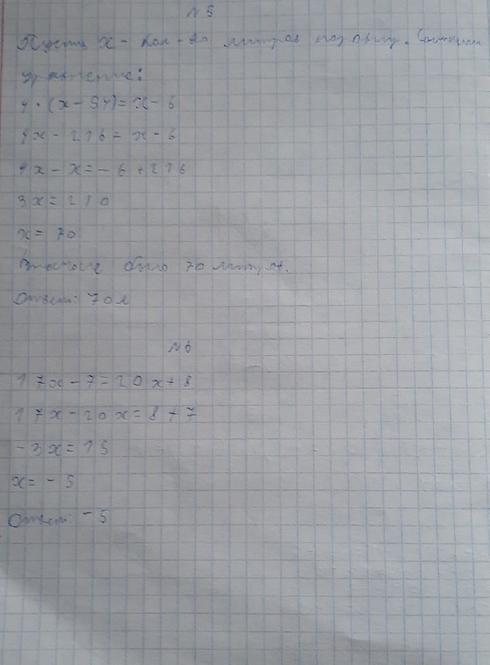 № 5
Пусть x - кол-во литров поз . Составим
уравнение:
4 · (x - 54) = x - 6
4x - 216 = x - 6
4x - x = - 6 + 216
3x = 210
x = 70
было 70 литров.
Ответ: 70 л
№ 6
17x - 7 = 20x + 8
17x - 20x = 8 + 7
- 3x = 15
x = - 5
Ответ: - 5